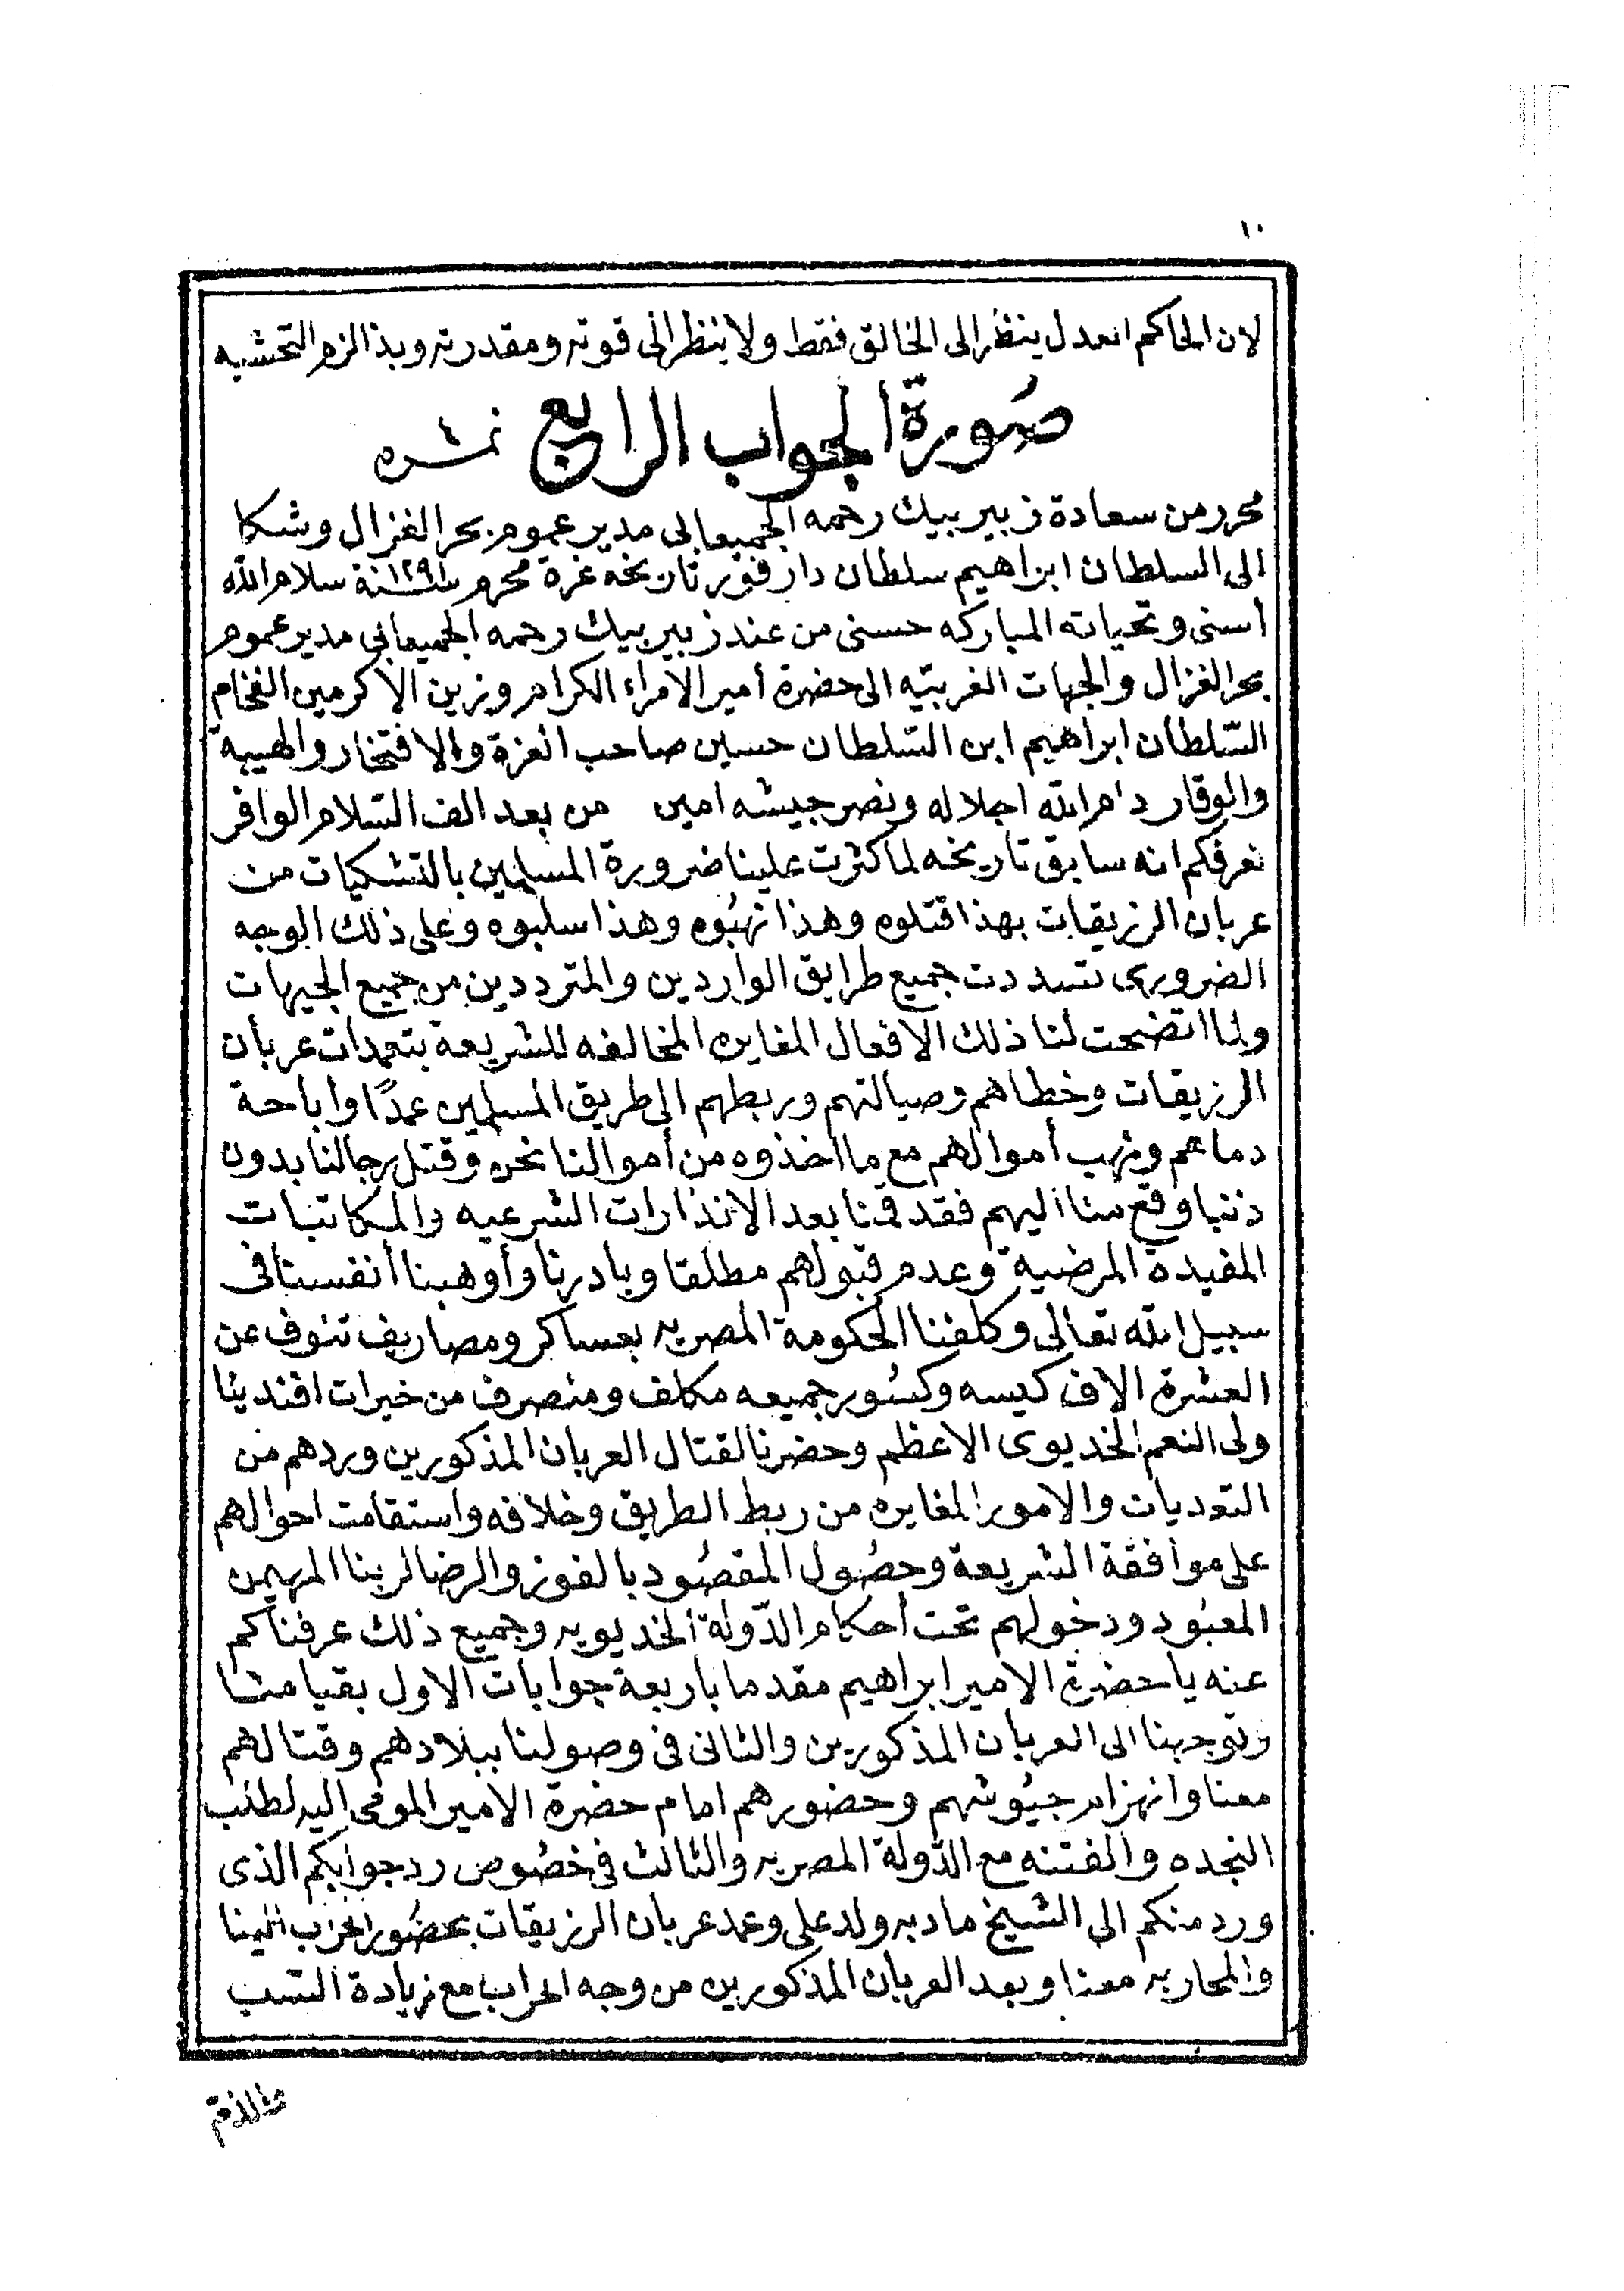 ١٠
لان الحاكم العدل ينظر الى الخالق فقط ولا ينظر الى قوته ومقدرته وبذا لزم التحشيه
صُورة الجواب الرابع نمره
محرر من سعادة زبير بيك رحمه الجميعابى مدير عموم بحر الغزال وشكا
الى السلطان ابراهيم سلطان دار فور تاريخه غرة محرم سنة ١٢٩١ سلام الله
أسنى وتحياته المباركه حسنى من عند زبير بيك رحمه الجميعابى مدير عموم
بحر الغزال والجهات الغربيّه الى حضرة أمير الامراء الكرام وزين الاكرمين الفخام
السّلطان ابراهيم ابن السّلطان حسين صاحب العزة والافتخار والهيبة
والوقار دام الله اجلاله ونصر جيشه امين من بعد الف السّلام الوافر
نعرفكم انه سابق تاريخه لما كثرت علينا ضرورة المسلمين بالتشكيات من
عربان الرزيقات بهذا قتلوه وهذا نهبُوه وهذا سلبوه وعلى ذلك الوجه
الضرورى تسددت جميع طرايق الواردين والمترددين من جميع الجيهات
ولما اتضحت لنا ذلك الافعال المغايره المخالفه للشريعة بتعمدات عربان
الرزيقات وخطاهم وصيالتهم وربطهم الى طريق المسلمين عمدًا واباحة
دماهم ونهب أموالهم مع ما اخذوه من أموالنا نحن وقتل رجالنا بدون
ذنبا وقع منا اليهم فقد قمنا بعد الانذارات الشرعيه والمكاتبات
المفيدة المرضية وعدم قبولهم مطلقا وبادرنا وأوهبنا أنفسنا فى
سبيل الله تعالى وكلفنا الحكومة المصريه بعساكر ومصاريف تنوف عن
العشرة الاف كيسه وكسُور جميعه مكلف ومنصرف من خيرات افندينا
ولى النعم الخديوى الاعظم وحضرنا لقتال العربان المذكورين وردهم من
التعديات والامور المغايره من ربط الطريق وخلافه واستقامت احوالهم
على موافقة الشريعة وحصُول المقصُود بالفوز والرضا لربنا المهيمن
المعبُود ودخولهم تحت أحكام الدّولة الخديويه وجميع ذلك عرفناكم
عنه يا حضرة الامير ابراهيم مقدما باربعة جوابات الاول بقيامنا
وتوجهنا الى العربان المذكورين والثانى فى وصولنا ببلادهم وقتالهم
معنا وانهزام جيُوشهم وحضورهم امام حضرة الامير المومى اليه لطلب
النجده والفتنه مع الدّولة المصريه والثالث فى خصُوص رد جوابكم الذى
ورد منكم الى الشيخ مادبه ولد على وعمد عربان الرزيقات بحضُور الحرب الينا
والمحاربه معنا وبعد العربان المذكورين من وجه الحراب مع زيادة السّب